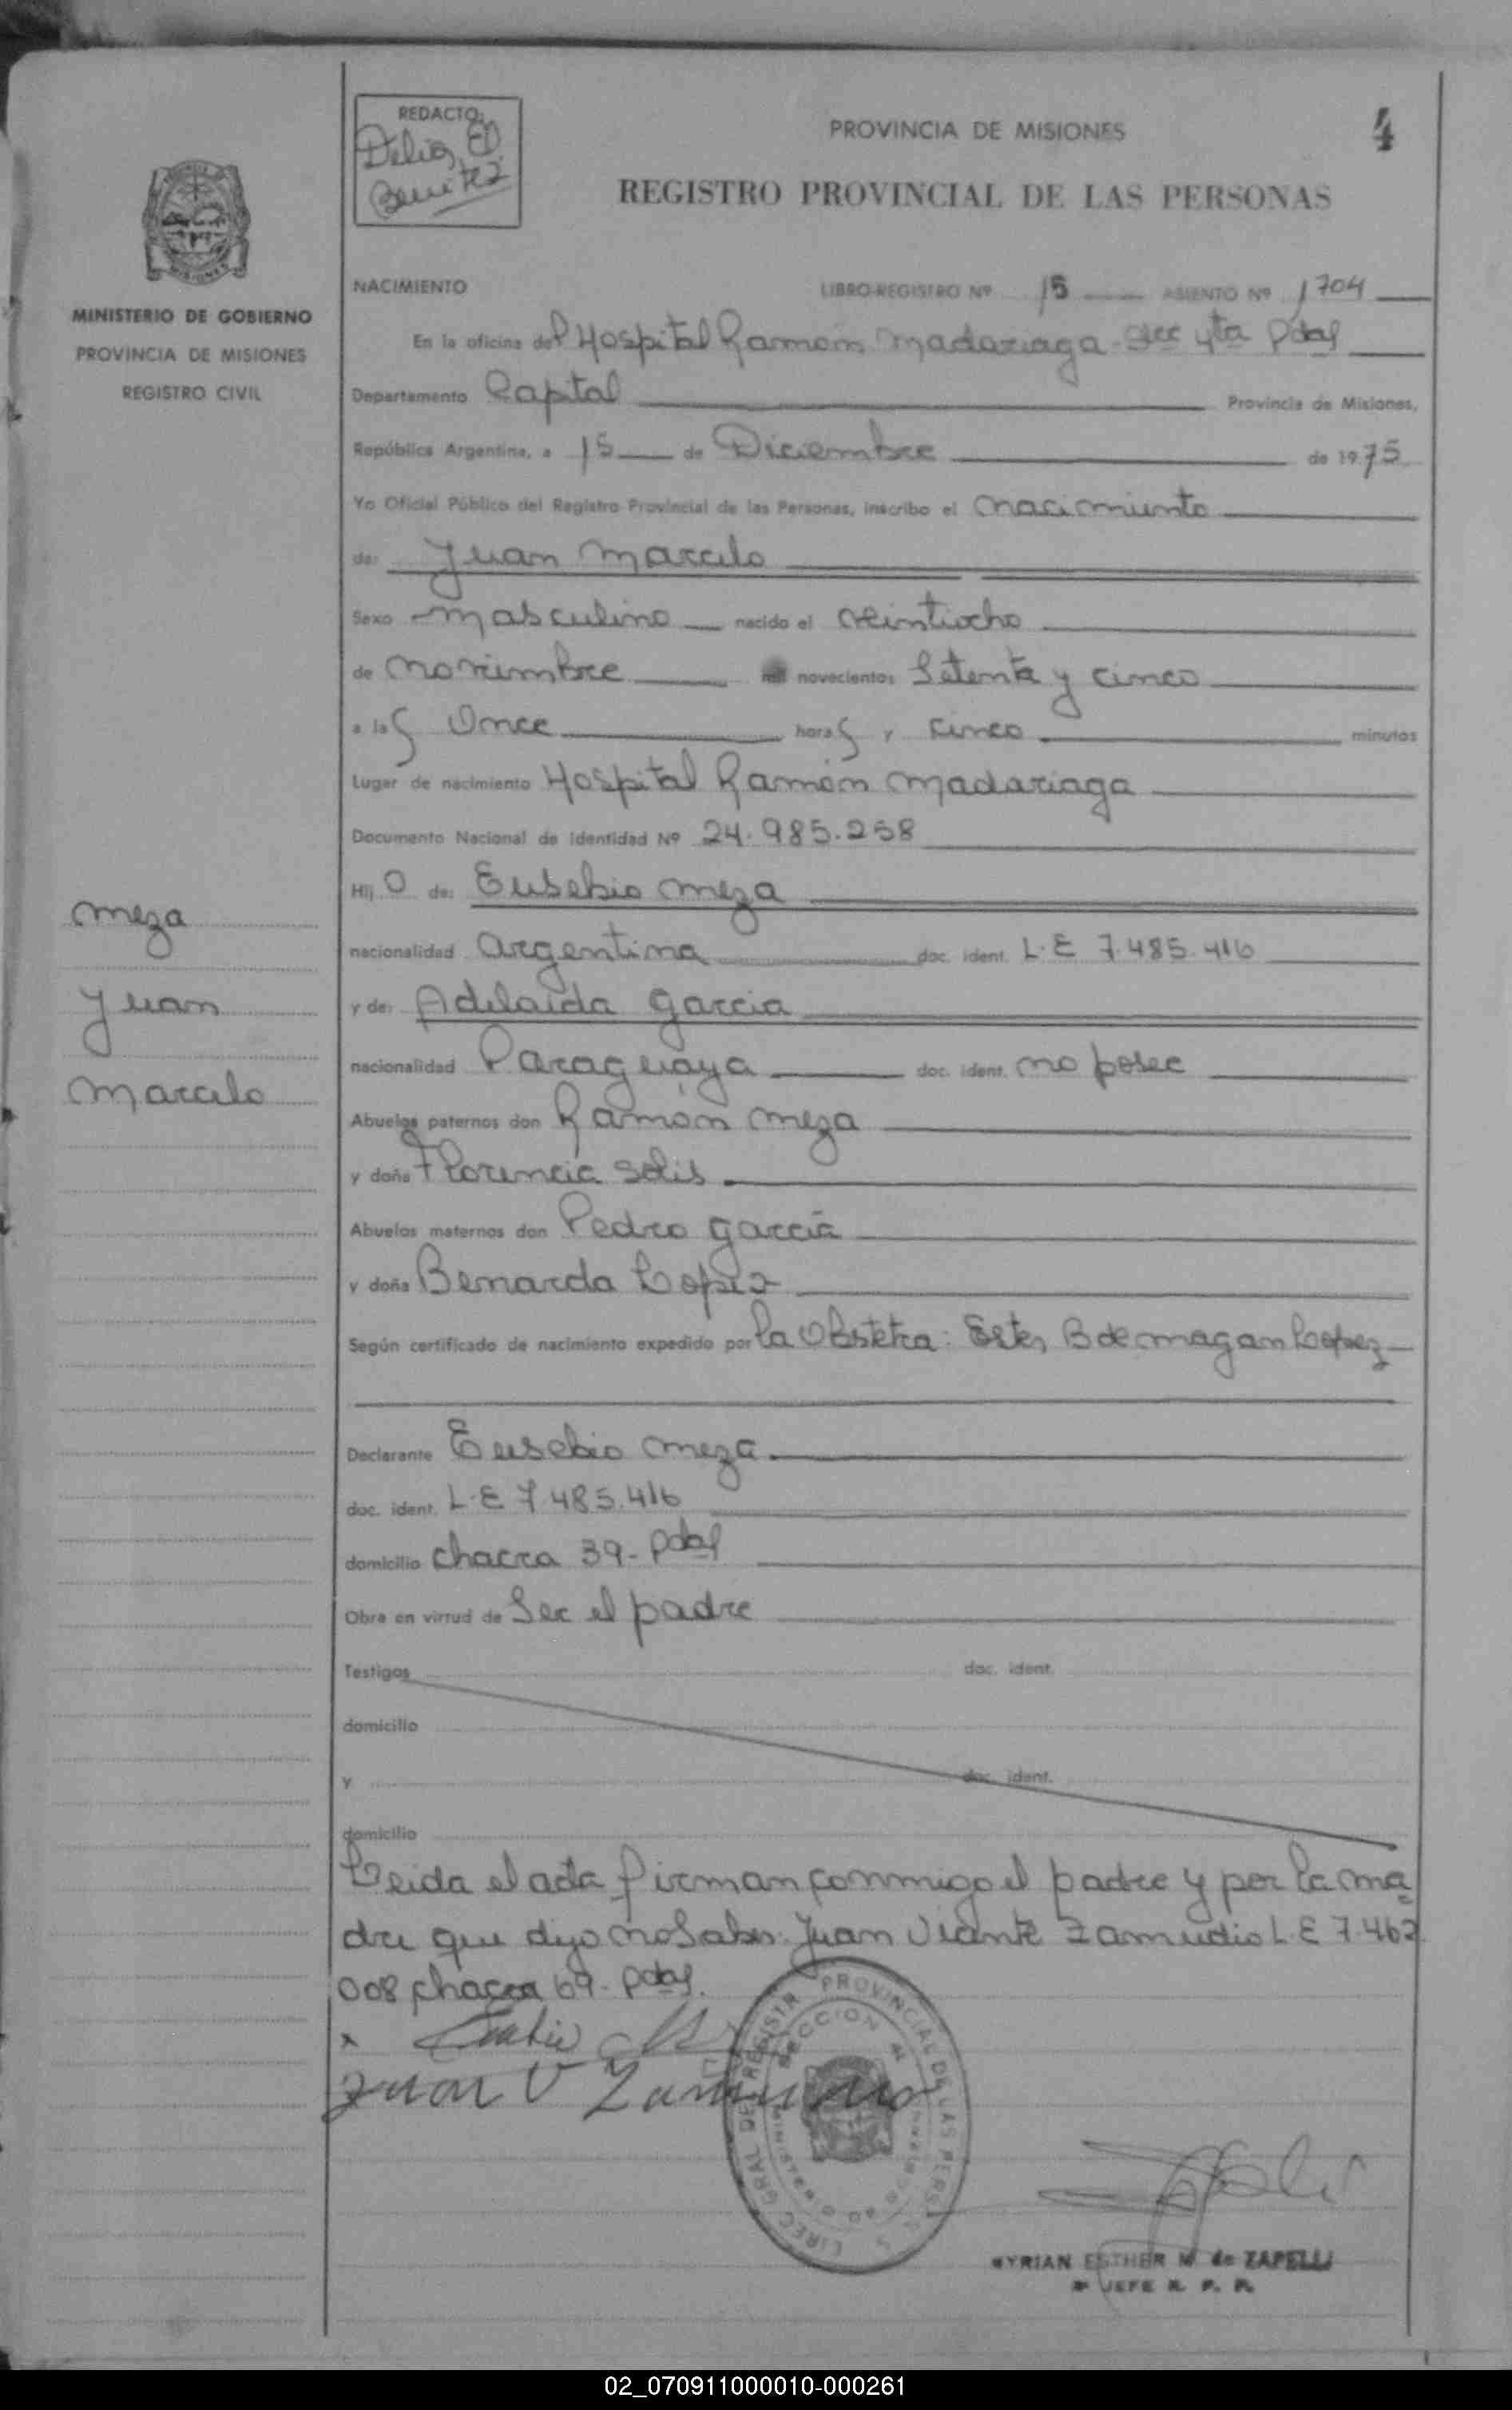 REDACTO:
Delia, E.
Benitez
PROVINCIA DE MISIONES
4
REGISTRO PROVINCIAL DE LAS PERSONAS
MINISTERIO DE GOBIERNO
PROVINCIA DE MISIONES
REGISTRO CIVIL
NACIMIENTO LIBRO-REGISTRO Nº 15 ASIENTO Nº 1704
En la oficina del Hospital Ramón Madariaga - Secc 4ta Pdas
Departamento Capital Provincia de Misiones,
República Argentina, a 15 de Diciembre de 1975
Yo Oficial Público del Registro Provincial de las Personas, inscribo el nacimiento
de: Juan Marcelo
Sexo masculino nacido el veintiocho
de noviembre mil novecientos Setenta y cinco
a las Once horas y cinco minutos
Lugar de nacimiento Hospital Ramón Madariaga
Documento Nacional de Identidad Nº 24.985.258
Hij O de: Eusebio Meza
nacionalidad argentina doc. ident. L.E 7.485.416
y de: Adelaida Garcia
nacionalidad Paraguaya doc. ident. no posee
Abuelos paternos don Ramón Meza
y doña Florencia Solis
Abuelos maternos don Pedro García
y doña Benarda Lopez
Según certificado de nacimiento expedido por la Obstetra: Ester B de Magan Lopez
Declarante Eusebio Meza
doc. ident. L.E 7.485.416
domicilio chacra 39- Pdas
Obra en virtud de Ser el padre
Testigos doc. ident.
domicilio
y doc. ident.
domicilio
Leida el acta firman conmigo el padre y por la ma
dre que dijo no Saber: Juan Vicente Zamudio L.E 7.462
008 chacra 69- Pdas.
Juan V Zamudio
Meza
Juan
Marcelo
MYRIAN ESTHER M de ZAPELLI
JEFE R. P. P.
02_070911000010-000261